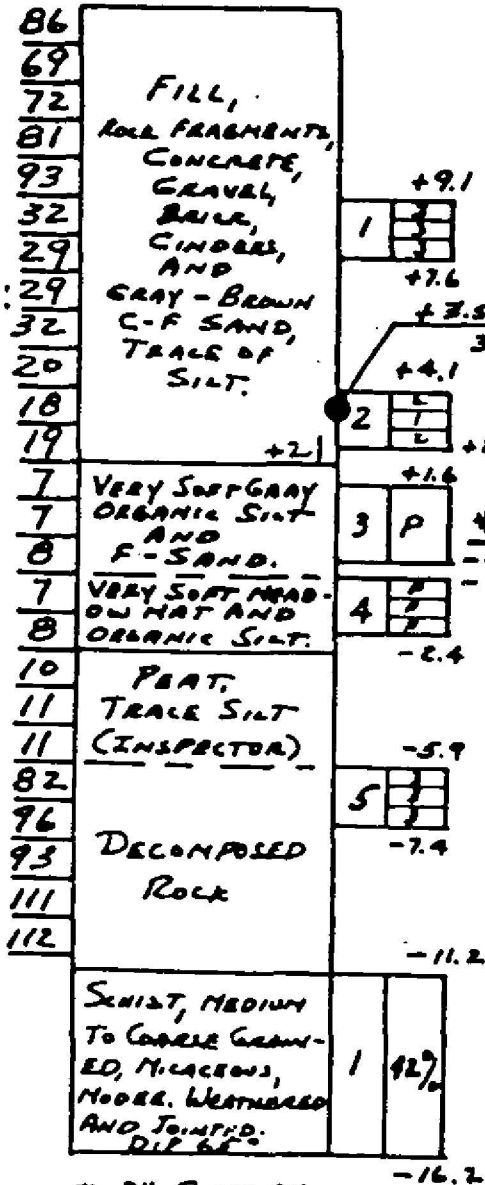 86
69
72
81
93
32
29
29
32
20
18
19
7
7
8
7
8
10
11
11
82
96
93
111
112
FILL,
ROCK FRAGMENTS,
CONCRETE,
GRAVEL,
BRICK,
CINDERS,
AND
GRAY-BROWN
C-F SAND,
TRACE OF
SILT.
+2
VERY SOFT GRAY
ORGANIC SILT
AND
F-SAND.
VERY SOFT MEAD-
OW MAT AND
ORGANIC SILT.
PEAT,
TRACE SILT
(INSPECTOR)
DECOMPOSED
ROCK
SCHIST, MEDIUM
TO COARSE GRAIN-
ED, MICACEOUS,
MODER. WEATHERED
AND JOINTED.
DIP 65°
+9.1
1
+7.6
+4.1
2
2
1
2
+1.6
3 P
4
P
P
P
-2.4
-5.9
5
-7.4
-11.2
1 42%
-16.2